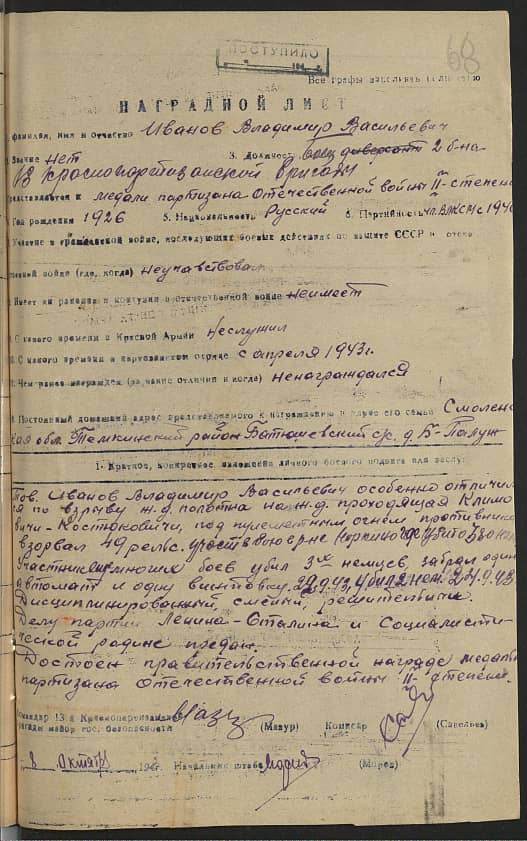 ПОСТУПИЛО
68
Все графы заполнять
НАГРАДНОЙ ЛИСТ
Фамилия, имя и отчество Иванов Владимир Васильевич
Звание нет 3. Должность боец диверсант 2 б-на
13 Краснопартизанской бригады
представляется к медали партизана Отечественной войны II степени
Год рождения 1926 5. Национальность Русский 6. Партийность чл. ВЛКСМ с 1940
Участие в гражданской войне, последующих боевых действиях по защите СССР и отече
ственной войне (где, когда) неучавствовал
Имеет ли ранения и контузии в отечественной войне неимеет
С какого времени в Красной Армии неслужил
С какого времени в партизанском отряде с апреля 1943 г.
Чем ранее награжден (за какие отличия и когда) ненаграждался
Постоянный домашний адрес представляемого к награждению и адрес его семьи Смоленс
кая обл. Темкинский район Батюшевский с/с. д.
1. Краткое, конкретное изложение личного боевого подвига или заслуг
Тов. Иванов Владимир Васильевич особенно отличил
ся по взрыву ж.д. полотна на ж.д. проходящая Климо
вичи - Костюковичи, под пулеметным огнем противника
взорвал 49 рельс. где убито
Участник многих боев убил 3х немцев, забрал один
автомат и одну винтовку.
Дисциплинированный, смелый, решительный.
Делу партии Ленина-Сталина и Социалисти-
ческой родине предан.
Достоен правительственной награде медаль
партизана отечественной войны II степени.
Командир 13 й Краснопартизанской
бригады майор гос. безопасности (Мазур) Комисар (Савельев)
8 Октябр 194 г. Начальник штаба (Мороз)